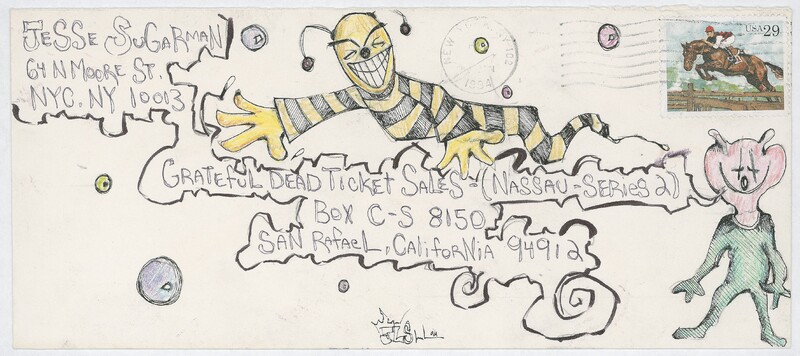 JESSE SUGARMAN
64 N MOORE ST.
NYC. NY 10013
USA 29
1994
GRATEFUL DEAD TICKET SALES - (NASSAU - SERIES 2)
BOX C-S 8150
SAN RAFAEL, CALIFORNIA 94912